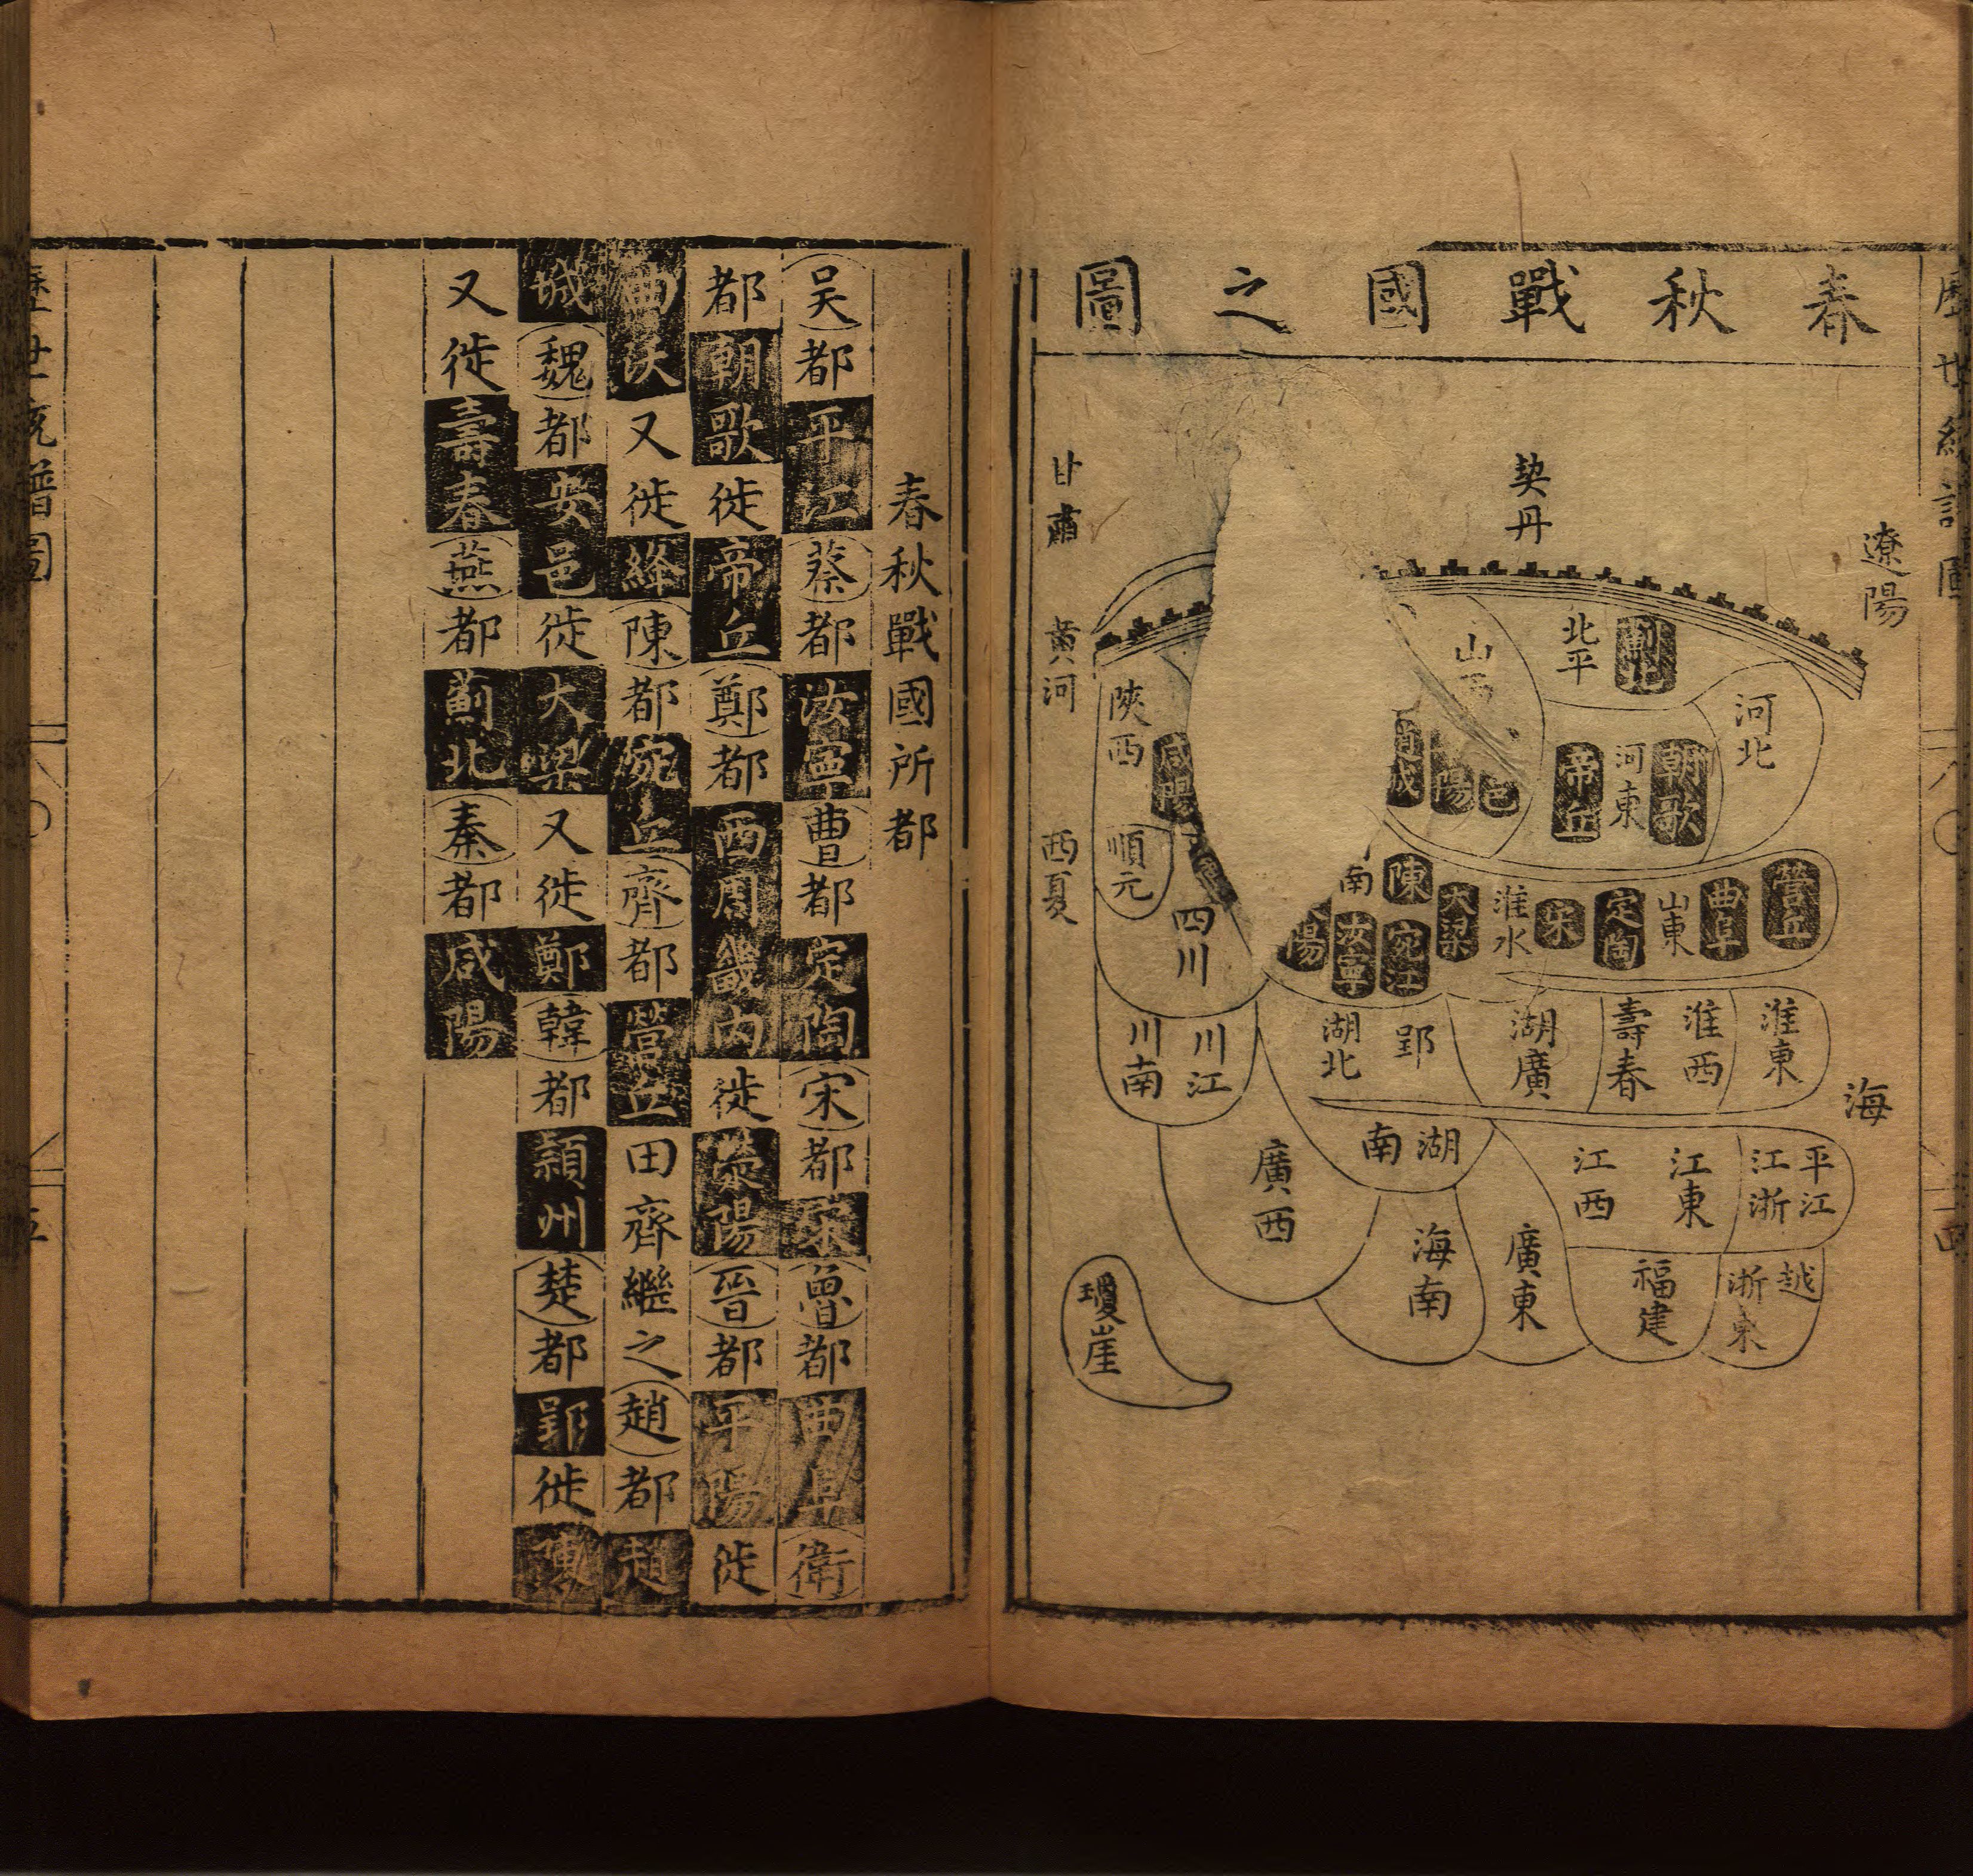 春秋戰國之圖
契丹
遼陽
甘肅
黃河
西夏
北平
薊北
山西
河北
朝歌
河東
帝丘
邑
陽
陝西
咸陽
順元
四川
營丘
曲阜
山東
定陶
宋
淮水
大梁
陳
宛江
南
汝寧
陽
淮東
淮西
壽春
湖廣
郢
湖北
川江
川南
海
平江
江浙
江東
江西
湖南
廣西
越
浙東
福建
廣東
海南
瓊崖
春秋戰國所都
吴都平江蔡都汝寧曹都定陶宋都宋魯都曲阜衛
都朝歌徙帝丘鄭都西周畿内徙滎陽晉都平陽徙
曲沃又徙絳陳都宛丘齊都營丘田齊繼之趙都趙
城魏都安邑徙大梁又徙鄭韓都潁州楚都郢徙陳
又徙壽春燕都薊北秦都咸陽